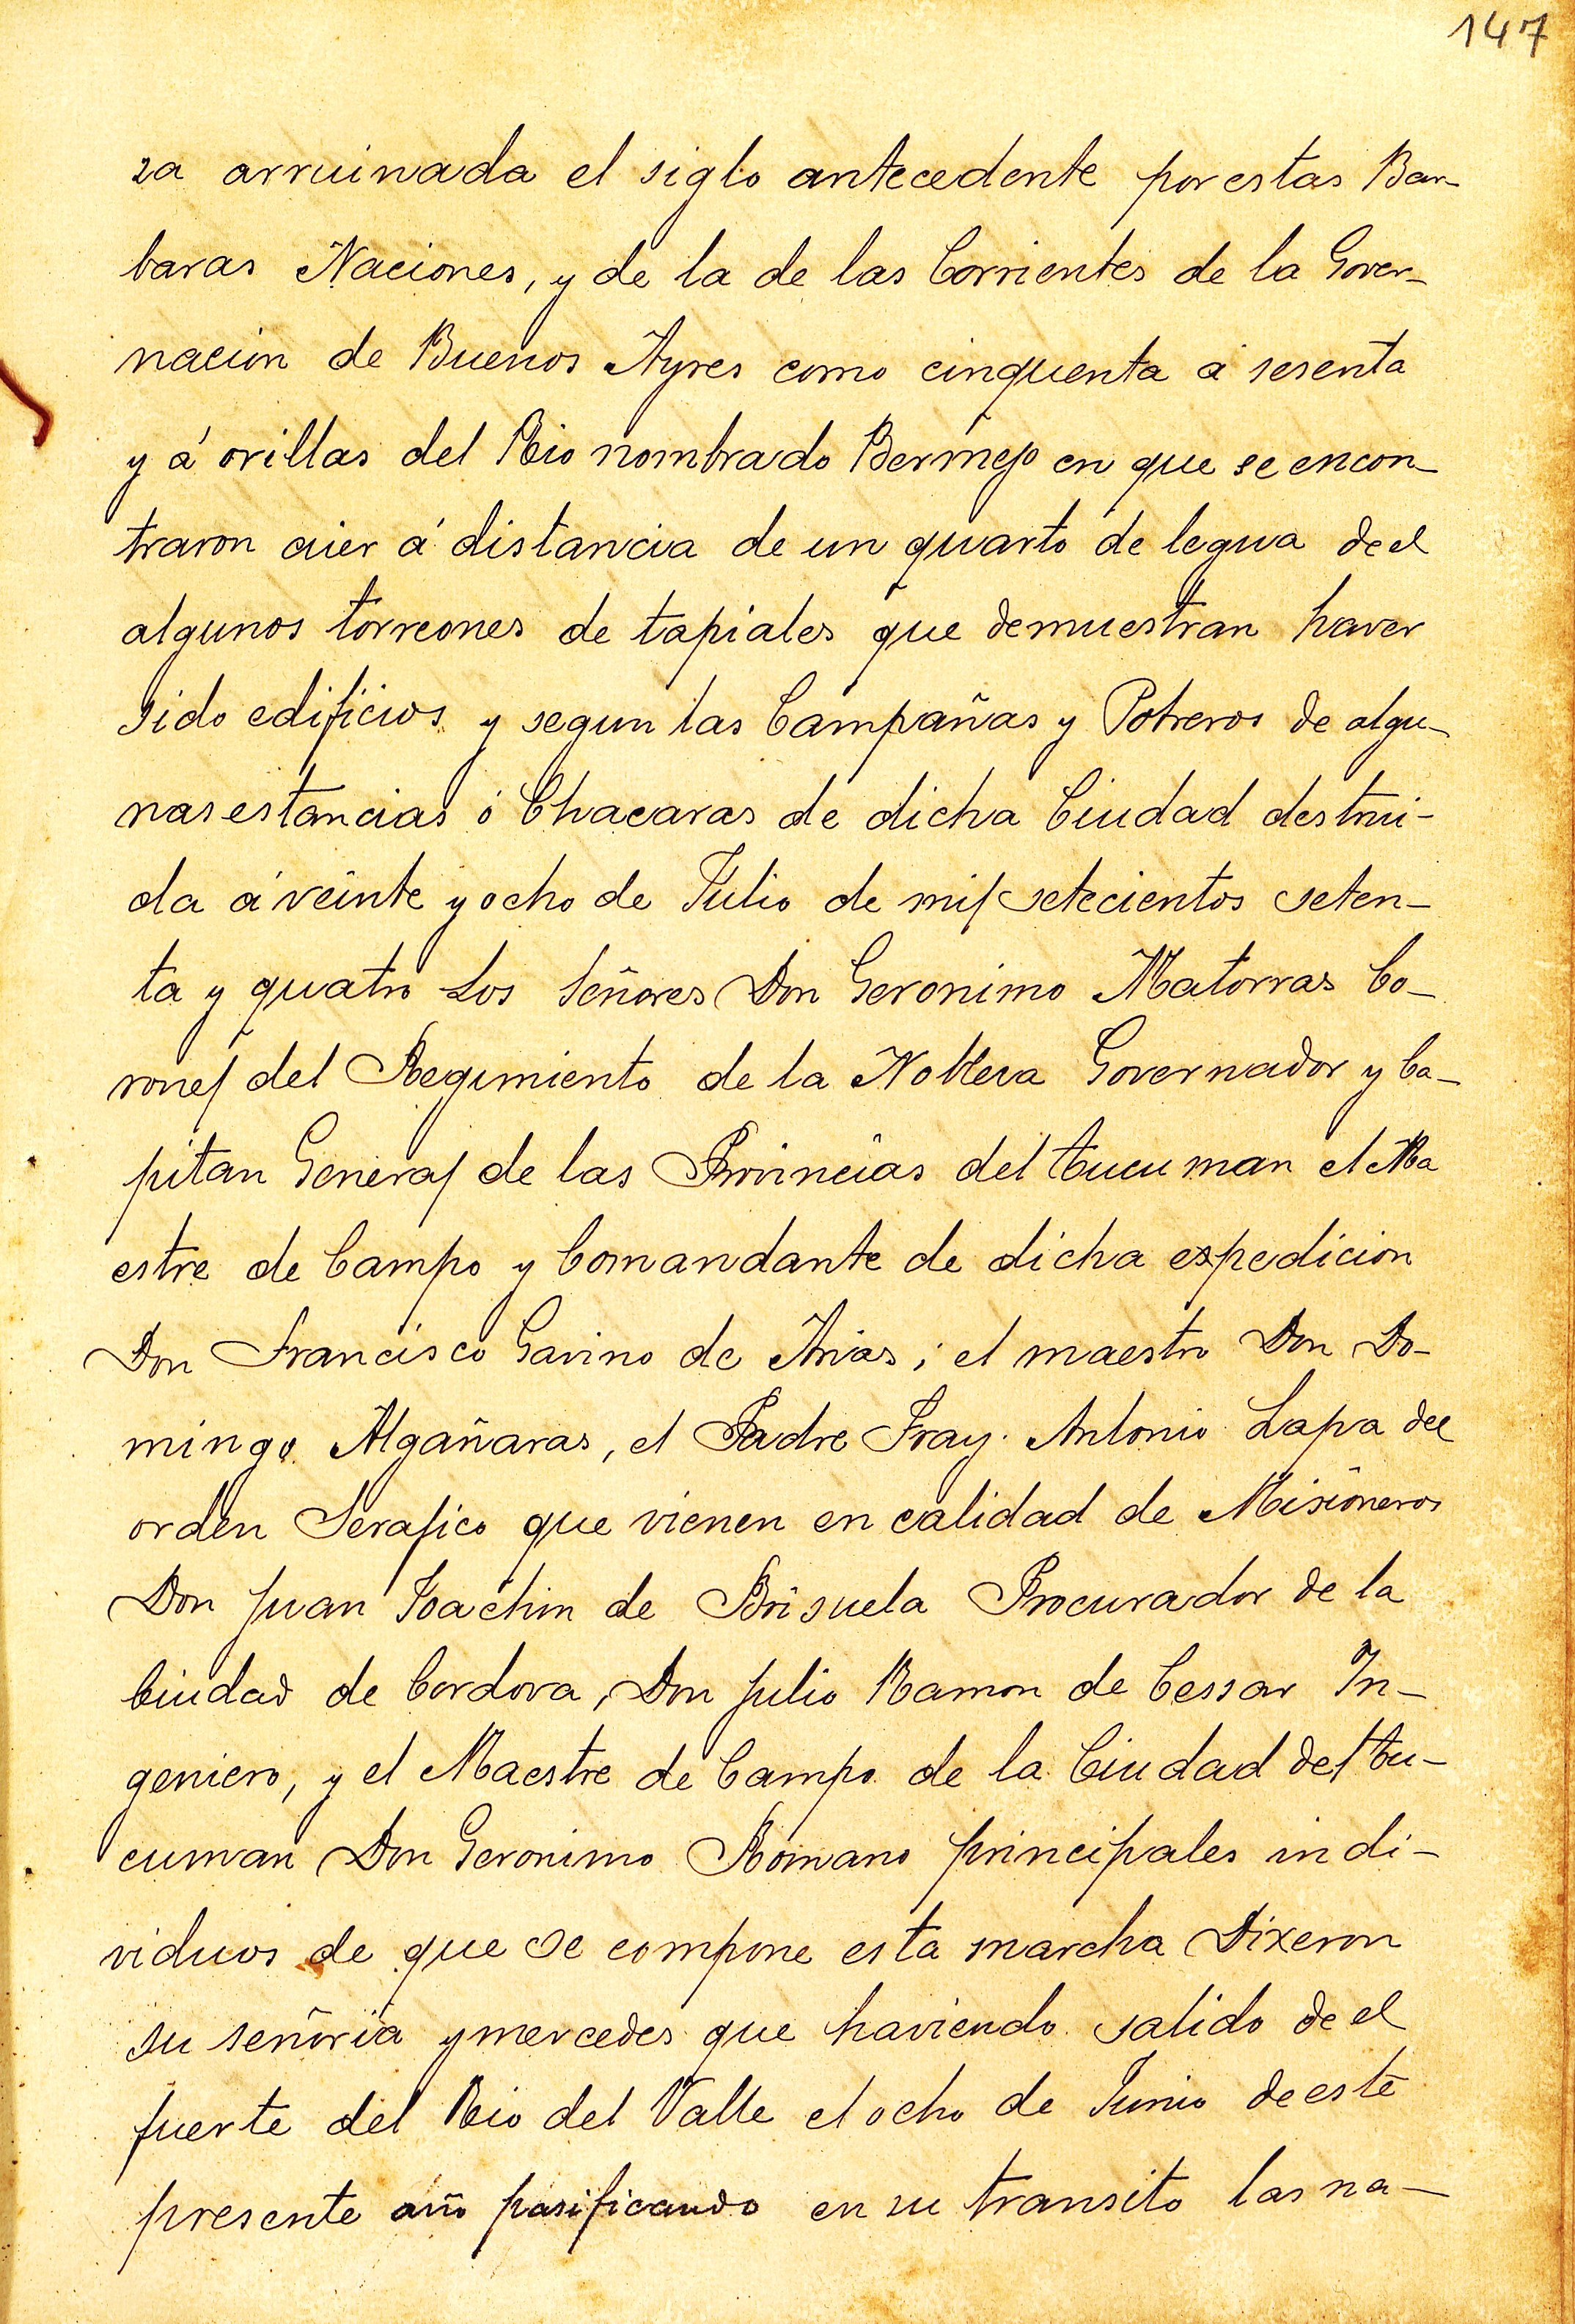 147
za arruinada el siglo antecedente por estas Bar-
baras Naciones, y de la de las Corrientes de la Gover-
nacion de Buenos Ayres como cinquenta á sesenta
y á orillas del Rio nombrado Bermejo en que se encon-
traron aier á distancia de un quarto de legua de el
algunos torreones de tapiales que demuestran haver
sido edificios y segun las Campañas y Potreros de algu-
nas estancias ó Chacaras de dicha Ciudad destrui-
da á veinte y ocho de Julio de mil setecientos seten-
ta y quatro Los Señores Don Geronimo Matorras Co-
ronel del Regimiento de la Nobleza Governador y Ca-
pitan General de las Provincias del Tucuman el Ma
estre de Campo y Comandante de dicha expedicion
Don Francisco Gavino de Arias; el maestro Don Do-
mingo Algañaras, el Padre Fray. Antonio Lapa del
orden Serafico que vienen en calidad de Misioneros
Don Juan Joachin de Brisuela Procurador de la
Ciudad de Cordova, Don Julio Ramon de Cessar In-
geniero, y el Maestre de Campo de la Ciudad del Tu-
cuman Don Geronimo Romano principales indi-
viduos de que se compone esta marcha Dixeron
su señoria y mercedes que haviendo salido de el
fuerte del Rio del Valle el ocho de Junio de este
presente año pasificando en su transito las na-